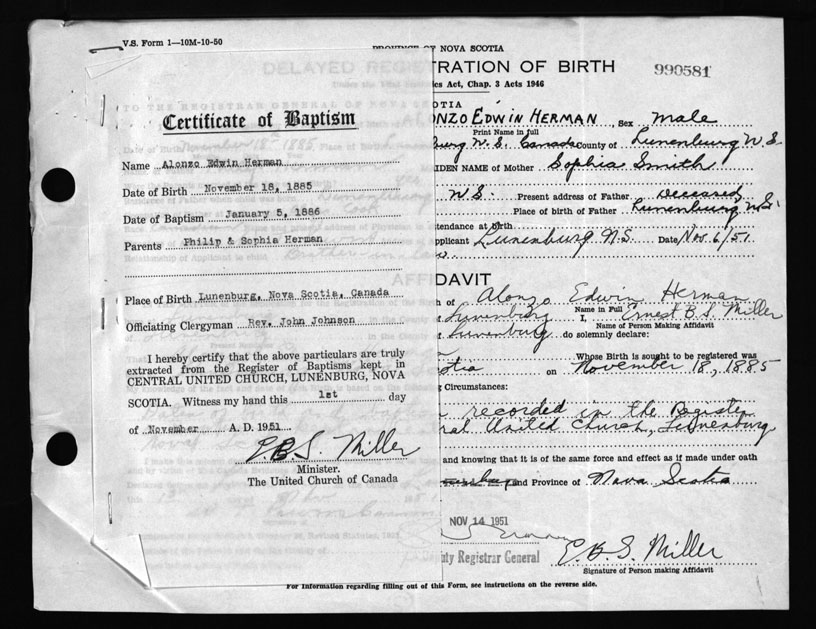 V.S. Form 1—10M-10-50
PROVINCE OF NOVA SCOTIA
DELAYED REGISTRATION OF BIRTH
990581
Act, Chap. 3 Acts 1946
Certificate of Baptism
Name Alonzo Edwin Herman
Date of Birth November 18, 1885
Date of Baptism January 5, 1886
Parents Philip & Sophia Herman
Place of Birth Lunenburg, Nova Scotia, Canada
Officiating Clergyman Rev. John Johnson
I hereby certify that the above particulars are truly
extracted from the Register of Baptisms kept in
CENTRAL UNITED CHURCH, LUNENBURG, NOVA
SCOTIA. Witness my hand this 1st day
of November A. D. 1951.
E.B.S. Miller
Minister.
The United Church of Canada
SCOTIA
ONZO EDWIN HERMAN, Sex Male
Print Name in full
burg N.S. Canada County of Lunenburg N.S.
IDEN NAME of Mother Sophia Smith
N.S. Present address of Father Deceased
Place of birth of Father Lunenburg N.S.
ttendance at birth
pplicant Lunenburg N.S. Date Nov 6/51
AFFIDAVIT
h of Alonzo Edwin Herman
Name in Full
Lunenburg I, Ernest B.S. Miller
Name of Person Making Affidavit
Lunenburg do solemnly declare:
Whose Birth is sought to be registered was
Scotia on November 18, 1885
g Circumstances:
recorded in the Register
ral United Church, Lunenburg
and knowing that it is of the same force and effect as if made under oath
and Province of Nova Scotia
NOV 14 1951
ty Registrar General
E.B.S. Miller
Signature of Person making Affidavit
For Information regarding filling out of this Form, see instructions on the reverse side.